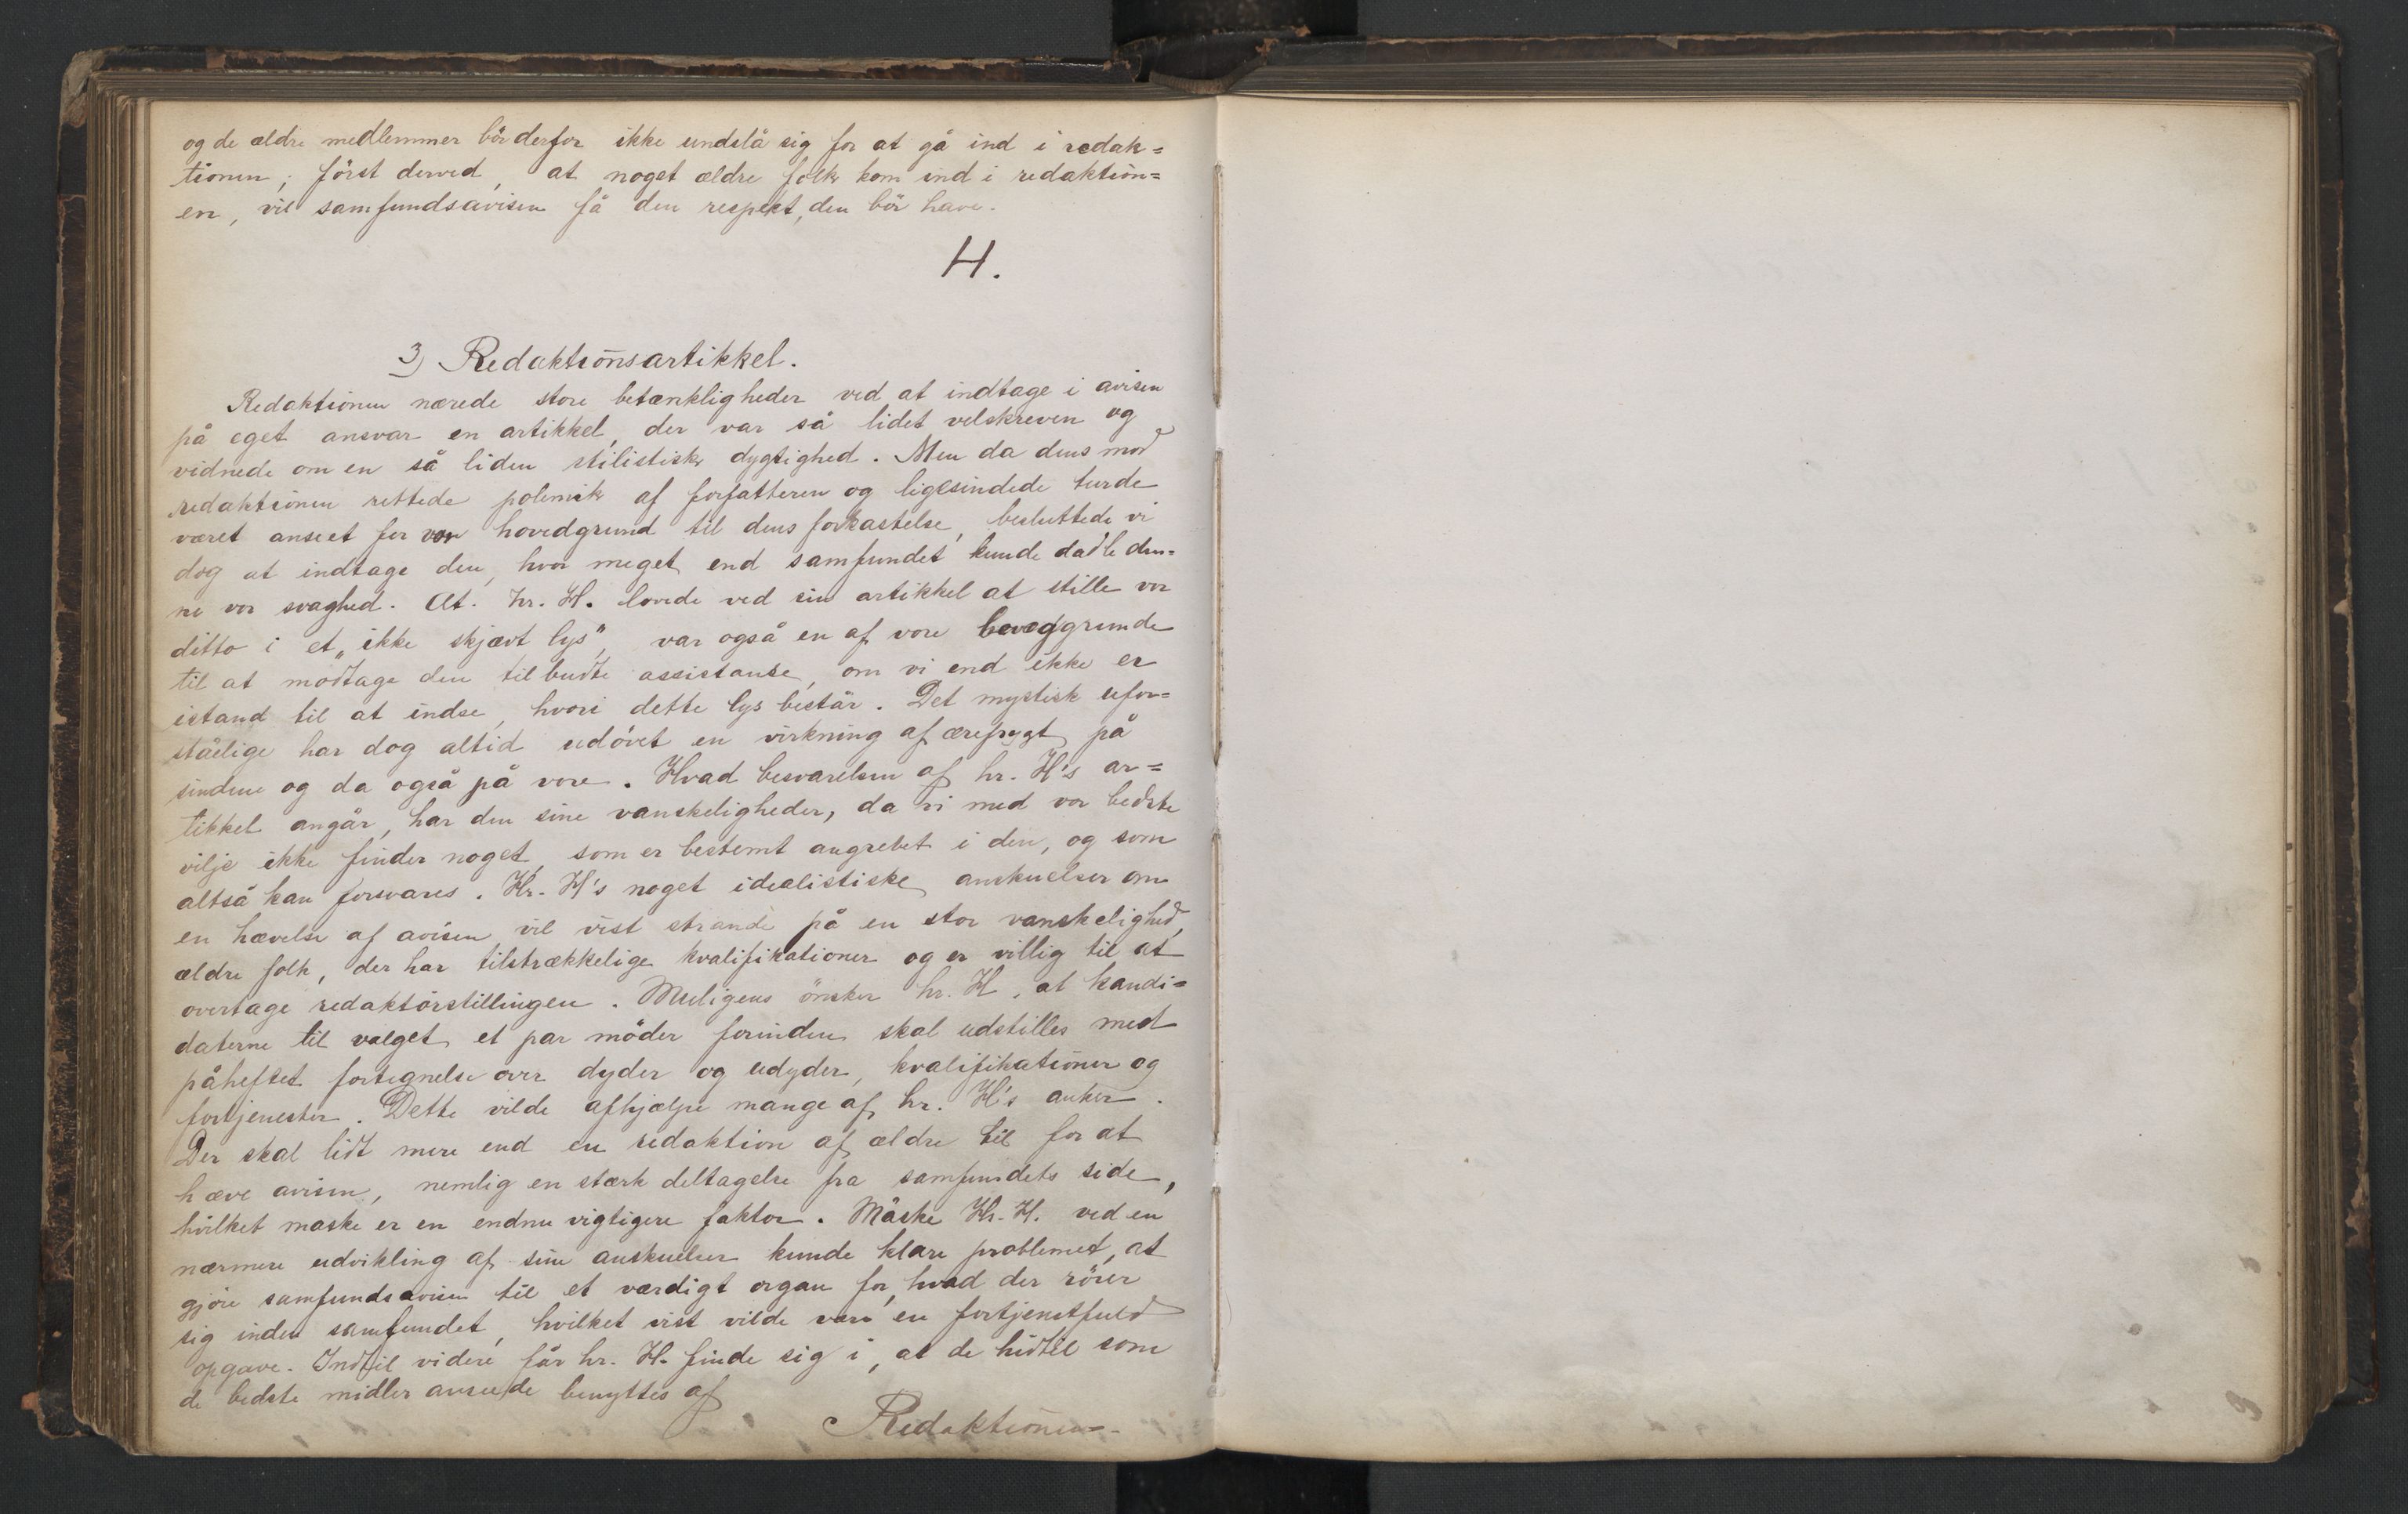 og de ældre medlemmer bör derfor ikke undslå sig for at gå ind i redak=
tionen; först derved, at noget ældre folk kom ind i redaktion=
en, vil samfundsavisen få den respekt, den bör have.
H.
3) Redaktionsartikkel.
Redaktionen nærede store betænkligheder ved at indtage i avisen
på eget ansvar en artikkel, der var så lidet velskreven og
vidnede om en så liden stilistisk dygtighed. Men da dens mod
redaktionen rettede polemik af forfatteren og ligesindede turde
været anseet for vor hovedgrund til dens forkastelse, besluttede vi
dog at indtage den, hvor meget end samfundet kunde dadle den=
ne vor svaghed. At. hr. H. lovede ved sin artikkel at stille vor
ditto i et „ikke skjævt lys", var også en af vore bevæggrunde
til at modtage den tilbudte assistanse, om vi end ikke er
istand til at indse, hvori dette lys består. Det mystisk ufor=
ståelige har dog altid udövet en virkning af ærefrygt på
sindene og da også på vore. Hvad besvarelsen af hr. H's ar=
tikkel angår, har den sine vanskeligheder, da vi med vor bedste
vilje ikke finder noget, som er bestemt angrebet i den, og som
altså kan forsvares. Hr. H's noget idealistiske anskuelser om
en hævelse af avisen vil vist strande på en stor vanskelighed,
ældre folk, der har tilstrækkelige kvalifikationer og er villig til at
overtage redaktörstillingen. Muligens önsker hr. H, at kandi=
daterne til valget et par möder forinden skal udstilles med
påheftet fortegnelse over dyder og udyder, kvalifikationer og
fortjenester. Dette vilde afhjælpe mange af hr. H's anker.
Der skal lidt mere end en redaktion af ældre til for at
hæve avisen, nemlig en stærk deltagelse fra samfundets side,
hvilket maske er en endnu vigtigere faktor. Måske Hr. H. ved en
nærmere udvikling af sine anskuelser kunde klare problemet, at
gjöre samfundsavisen til et værdigt organ for, hvad der rörer
sig inden samfundet, hvilket vist vilde være en fortjenstfuld
opgave. Indtil videre får hr. H. finde sig i, at de hidtil som
de bedste midler anseede benyttes af
Redaktionen.